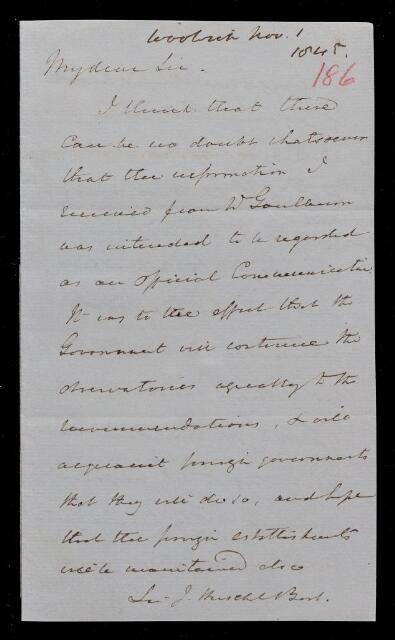 Woolwich Nov. 1
1845.
186
My dear Sir.
I think that there
can be no doubt whatsoever
that the information I
received from Mr Goulburn
was intended to be regarded
as an official Communication.
It was to the effect that the
Government will continue the
observatories agreeably to the
recommendations, & will
acquaint foreign governments
that they will do so, and hope
that the foreign establishments
will be maintained also
Sir J. Herschel Bart.